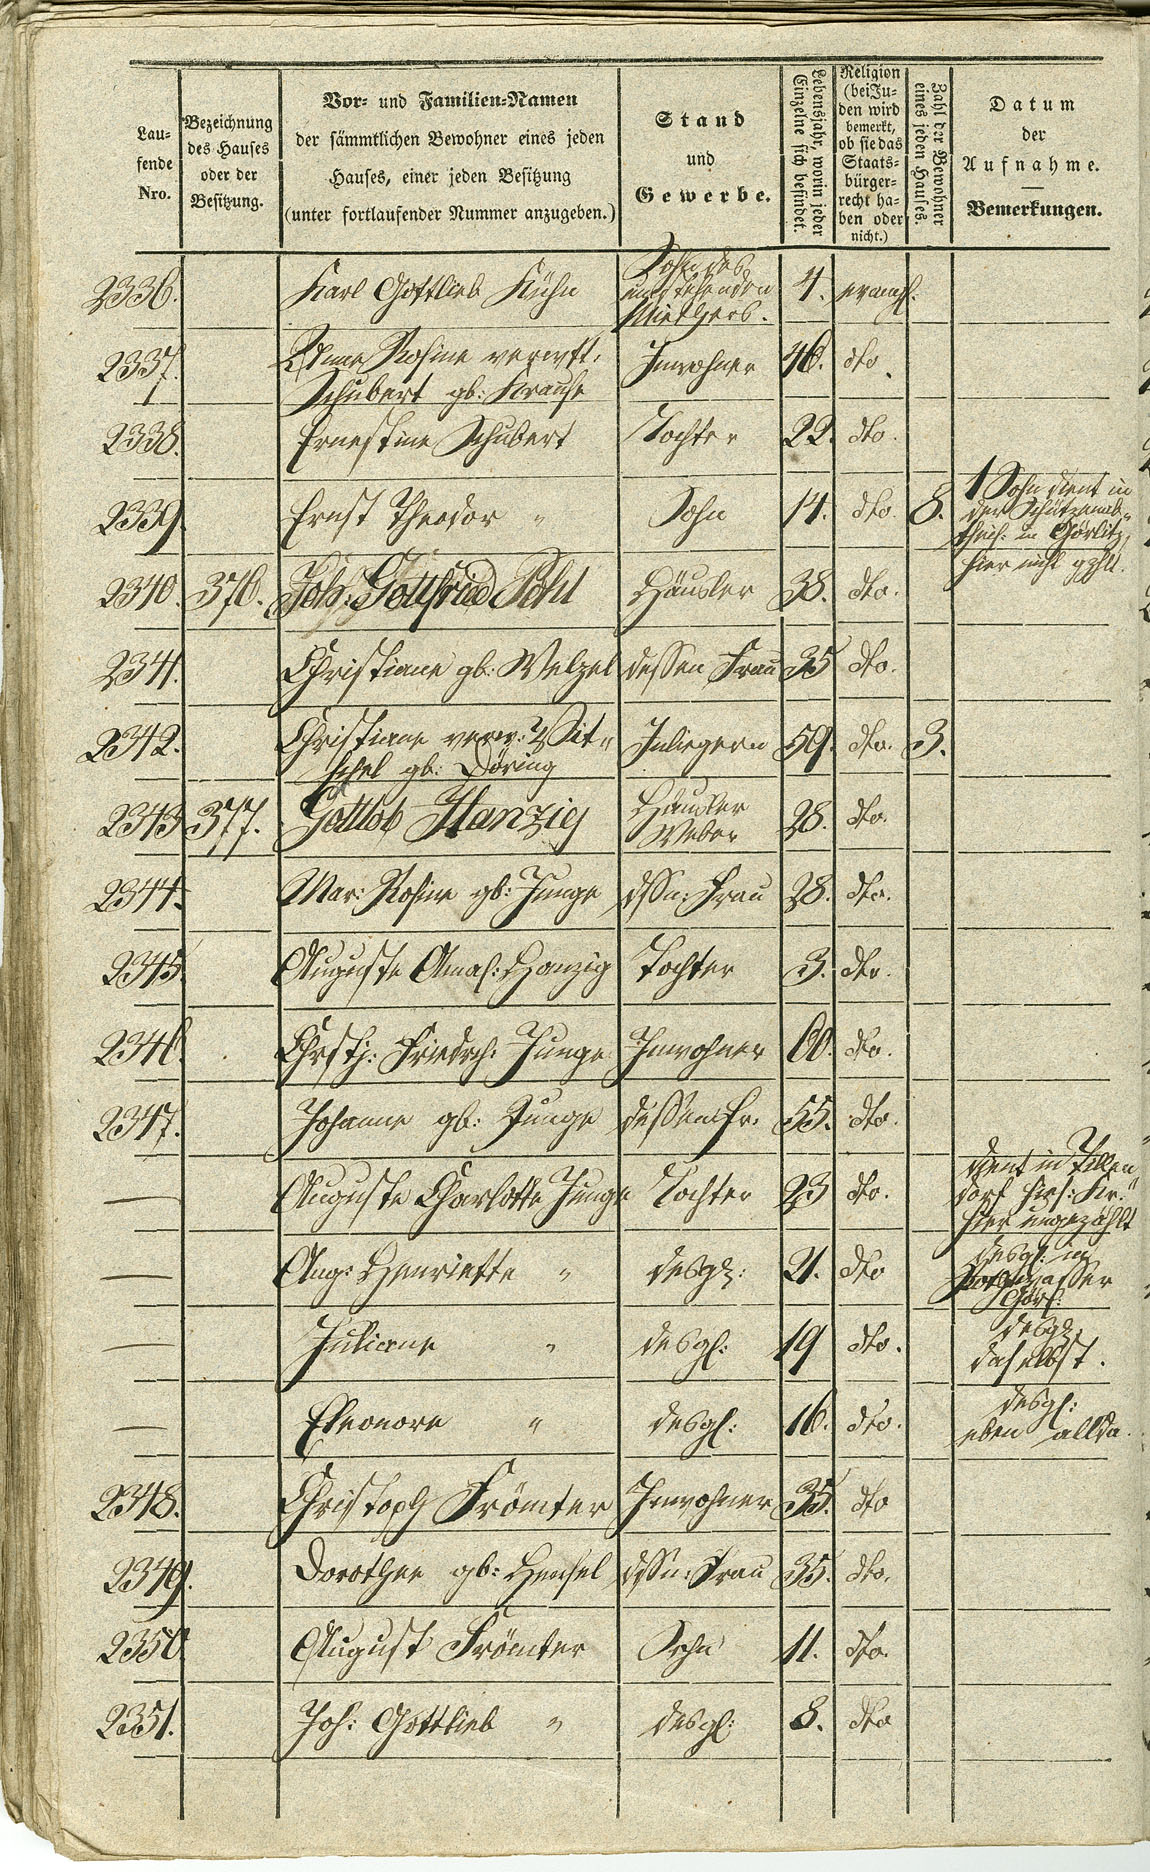 Lau-
fende
Nro.
Bezeichnung
des Hauses
oder der
Besitzung.
Vor- und Familien-Namen
der sämmtlichen Bewohner eines jeden
Hauses, einer jeden Besitzung
(unter fortlaufender Nummer anzugeben.)
Stand
und
Gewerbe.
Lebensjahr, worin jeder
Einzelne sich befindet.
Religion
(bei Ju-
den wird
bemerkt,
ob sie das
Staats-
bürger-
recht ha-
ben oder
nicht.)
Zahl der Bewohner
eines jeden Hauses.
Datum
der
Aufnahme.
Bemerkungen.
2336. Karl Gottlieb Kühn Sohn des
Miethers. 4. evangl.
2337. Anne Rosine verwtt. Inwohner 46. dto.
Schubert gb: Krause
2338. Ernestine Schubert Tochter 22. dto.
2339. Ernst Theodor " Sohn 14. dto. 8. 1 Sohn dient in
der Schützenab-
theil: in Görlitz,
hier nicht gzhlt.
2340. 376. Joh: Gottfried Pohl Häusler 38. dto.
2341. Christiane gb: Welzel dessen Frau 35 dto.
2342. Christiane verw: Wit- Inliegern 59. dto. 3.
schel gb: Döring
2343 377. Gottlob Hanzig Häusler 28. dto.
Weber
2344. Mar: Rosine gb: Junge dssn: Frau 28. dto.
2345. Auguste Amal: Hanzig Tochter 3. dto.
2346. Chrstj: Friedrch. Junge Inwohner 60. dto.
2347. Johanne gb: Junge dessen Fr. 55. dto.
— Auguste Charlotte Junge Tochter 23 dto. dient in Tillen
dorf hies: Kr.
hier ungezählt
— Aug: Henriette " desgl: 21. dto desgl: in
— Juliane " desgl: 19 dto. desgl.
daselbst.
— Eleonore " desgl: 16. dto. desgl:
eben allda.
2348. Christoph Frömter Inwohner 35. dto
2349. Dorothee gb: Hensel dssn: Frau 35. dto.
2350. August Frömter Sohn 11. dto.
2351. Joh: Gottlieb " desgl: 8. dto